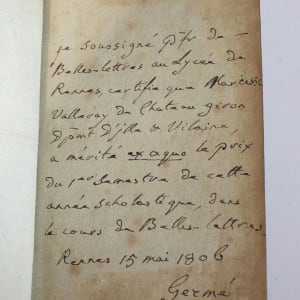 je soussigné Pfr de
Belles-lettres au Lycée de
Rennes, certifie que Narcisse
Valleray de Chateau giron
Dpmt D'ille & Vilaine,
a mérité ex æquo le prix
du 1er semestre de cette
année scholastique, dans
le cours de Belles-lettres.
Rennes 15 mai 1806
Germé